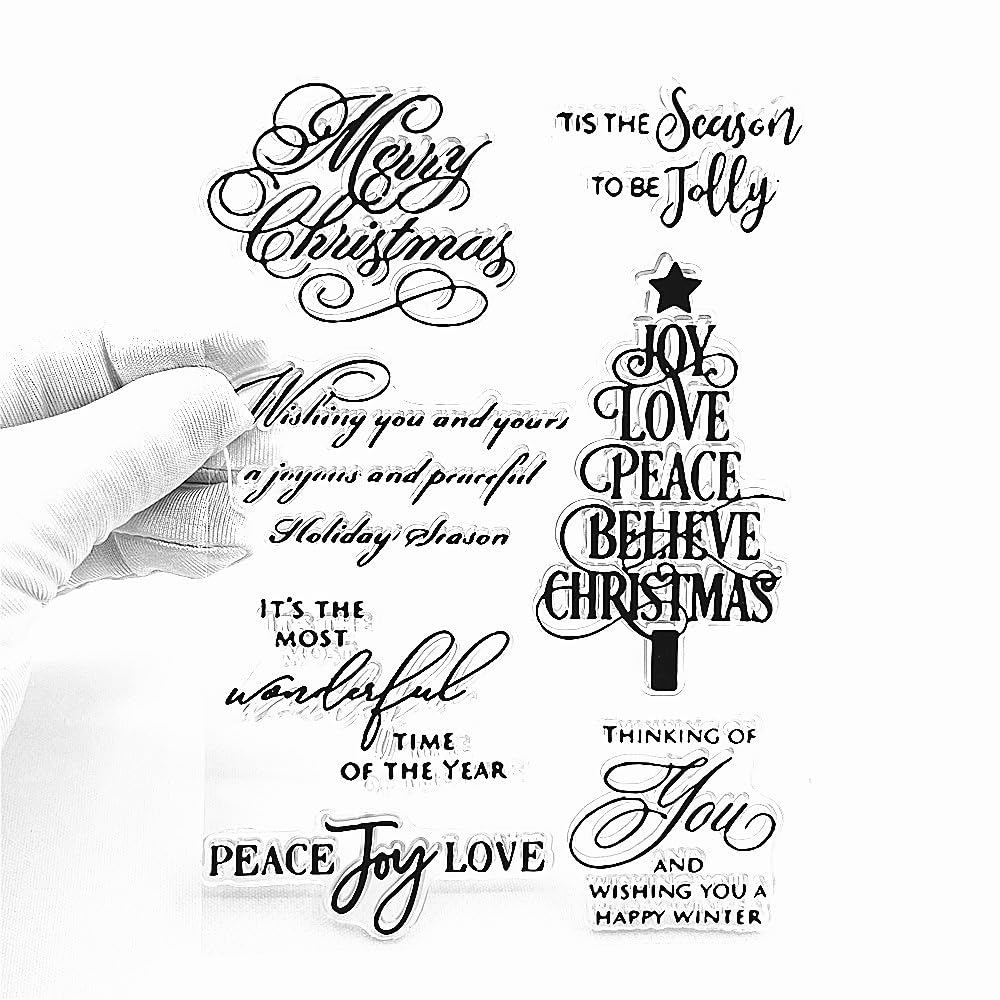 Merry
Christmas
'TIS THE Season
TO BE Jolly
JOY
LOVE
PEACE
BELIEVE
CHRISTMAS
Wishing you and yours
a joyous and peaceful
Holiday Season
IT'S THE
MOST
wonderful
TIME
OF THE YEAR
THINKING OF
You
AND
WISHING YOU A
HAPPY WINTER
PEACE Joy LOVE